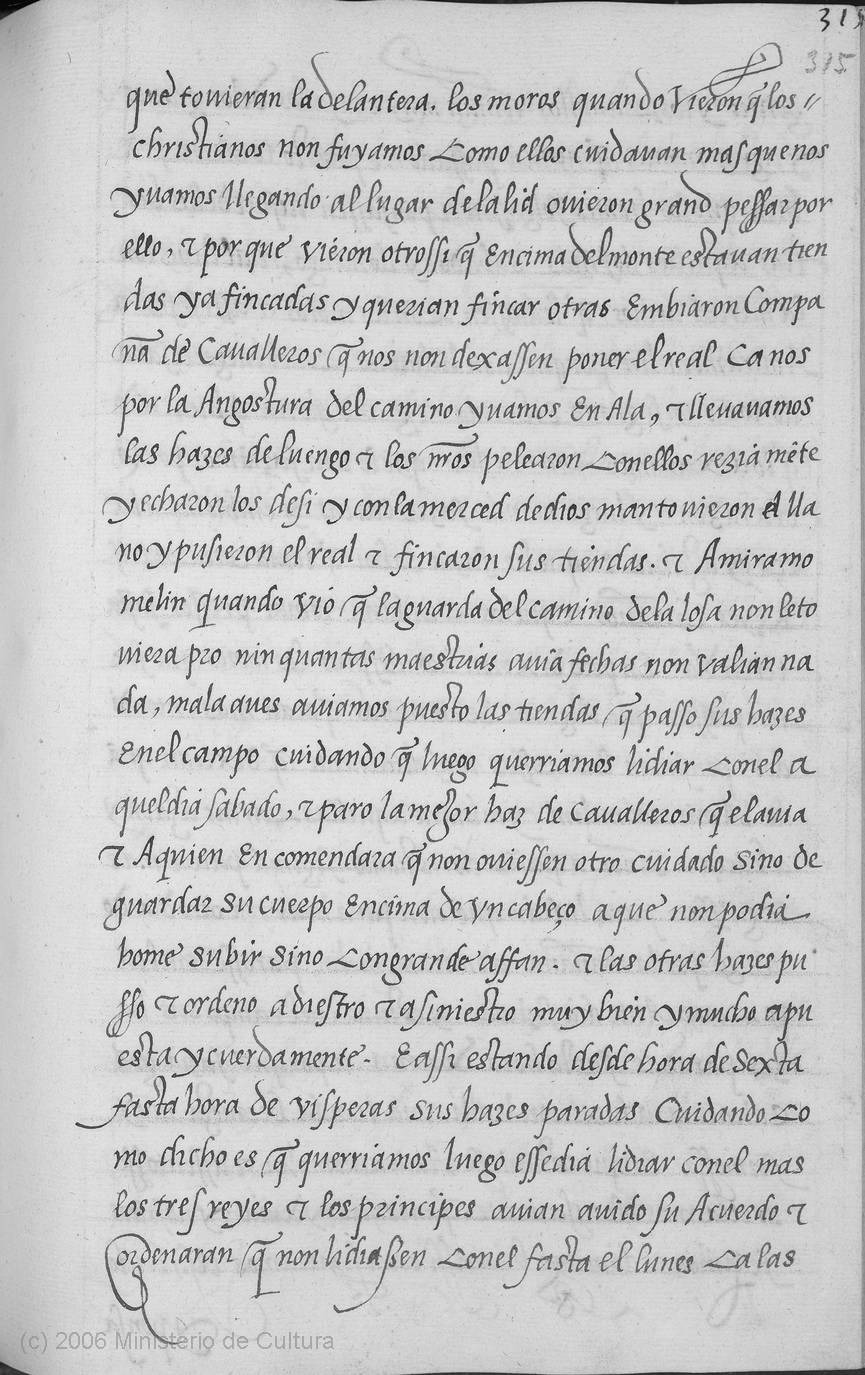 315
315
que touieran la delantera. los moros quando vieron q̃ los //
christianos non fuyamos Como ellos cuidauan mas que nos
yuamos llegando al lugar de la lid ouieron grand pessar por
ello, τ por que viêron otrossi q̃ Encima del monte estauan tien
das ya fincadas y querian fincar otras Embiaron Compa
ña de Caualleros q̃ nos non dexassen poner el real Ca nos
por la Angostura del camino yuamos En Ala, τ lleuauamos
las hazes de luengo τ los nr̃os pelearon Con ellos reziamẽte
y echaron los desi y con la merced de dios mantouieron el lla
no y pusieron el real τ fincaron sus tiendas. τ Amiramo
melin quando vio q̃ la guarda del camino de la losa non le to
uiera pro nin quantas maestrias auia fechas non valian na
da, mala aues auiamos puesto las tiendas q̃ passo sus hazes
En el campo cuidando q̃ luego querriamos lidiar Con el a
quel dia sabado, τ paro la mejor haz de Caualleros q̃ el auia
τ A quien En comendara q̃ non ouiessen otro cuidado sino de
guardar su cuerpo Encima de vn cabeço a que non podia
home subir sino Con grande affan. τ las otras hazes pu
sso τ ordeno a diestro τ a siniestro muy bien y mucho apu
esta y cuerdamente. E assi estando desde hora de Sexta
fasta hora de visperas sus hazes paradas Cuidando Co
mo dicho es q̃ querriamos luego esse dia lidiar con el mas
los tres reyes τ los principes auian auido su Acuerdo τ
ordenaran q̃ non lidiassen Con el fasta el lunes Ca las
(c) 2006 Ministerio de Cultura